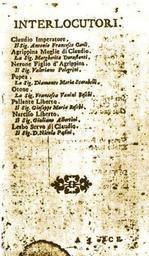 INTERLOCUTORI.
Claudio Imperatore.
Il Sig. Antonio Francesco Carli.
Agrippina Moglie di Claudio.
La Sig. Margherita Durastanti.
Nerone Figlio d'Agrippina.
Il Sig. Valeriano Pelegrini.
Popea.
La Sig. Diamante Maria Scarabelli.
Ottone.
La Sig. Francesca Vanini Boschi.
Pallante Liberto.
Il Sig. Giuseppe Maria Boschi.
Narciso Liberto.
Il Sig. Giuliano Albertini.
Lesbo Servo di Claudio.
Il Sig. D. Nicola Pasini.